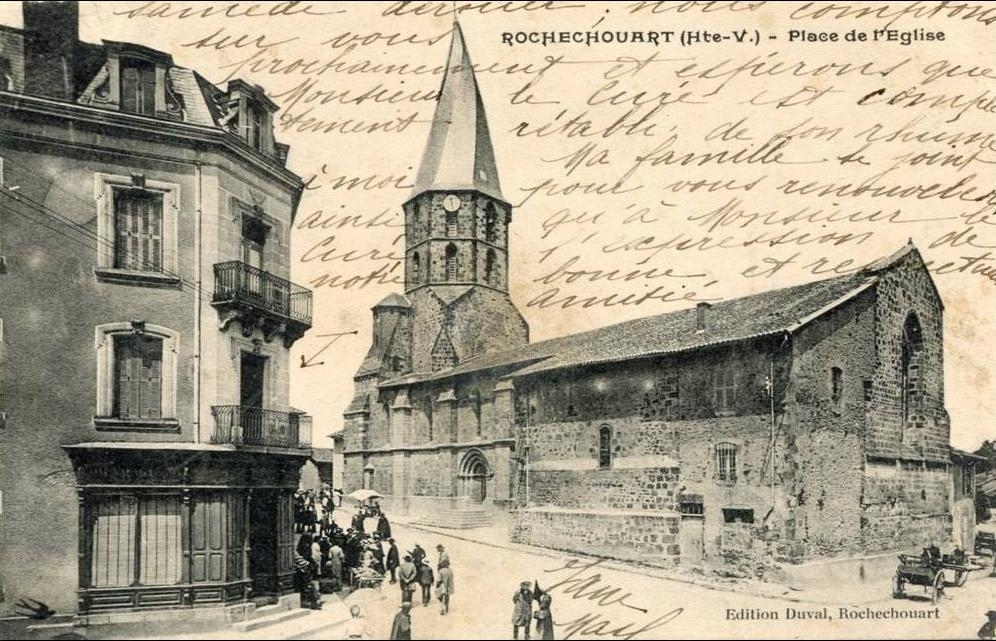 samedi dernier. nous comptons
ROCHECHOUART (Hte-V.) - Place de l'Eglise
sur vous
prochainement et espérons que
Monsieur le Curé est complè
tement rétabli, de son rhume
Ma famille se joint
à moi pour vous renouveler
ainsi qu'à Monsieur le
Curé l'expression de
notre bonne et re
amitié
Edition Duval, Rochechouart